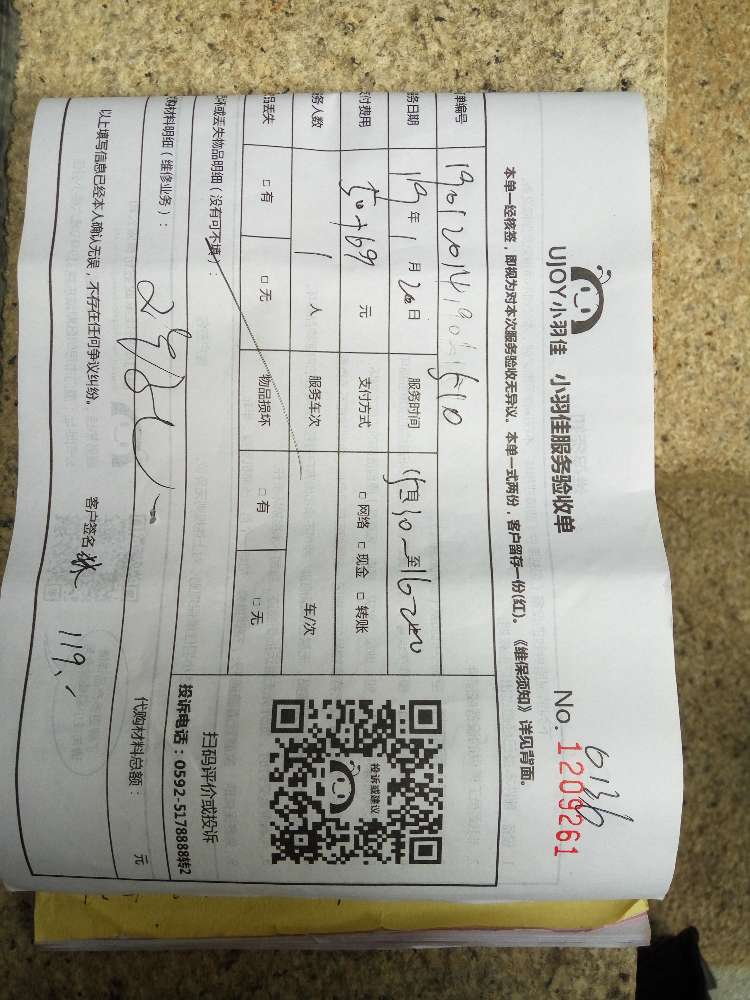 UJOY小羽佳 小羽佳服务验收单
No. 1209261
6136
本单一经核签，即视为对本次服务验收无异议。本单一式两份，客户留存一份(红)。《维保须知》详见背面。
单编号
务日期 19年1月20日 服务时间 至
付费用 元 支付方式 □ 网络 □ 现金 □ 转账
务人数 1 人 服务车次 车/次
品丢失 □ 有 □ 无 物品损坏 □ 有 □ 无
坏或丢失物品明细（没有可不填）：
投诉或建议
扫码评价或投诉
投诉电话：0592-5178888转2
购材料明细（维修业务）：
代购材料总额： 元
以上填写信息已经本人确认无误，不存在任何争议纠纷。 客户签名
119